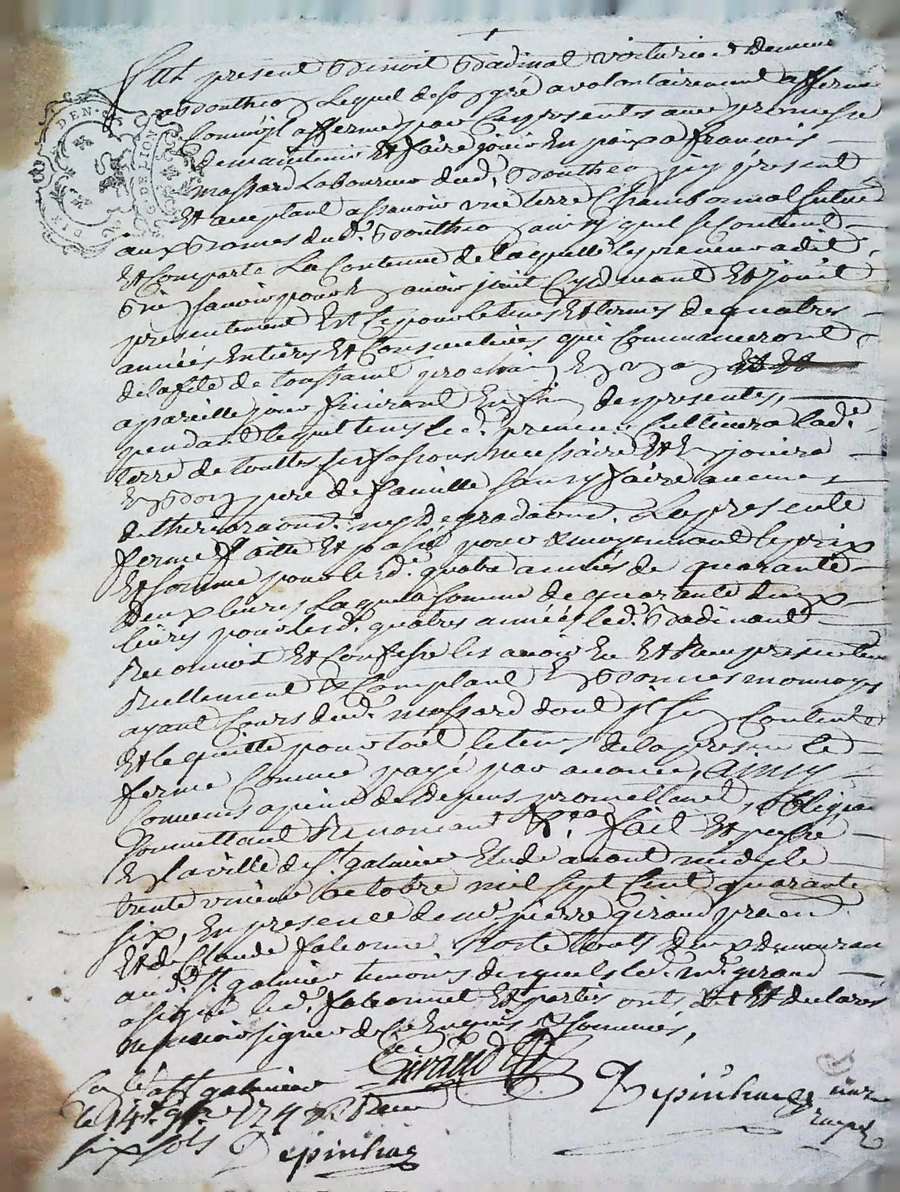 DIX DEN
G. DE LION
fut present Benoit Badinal voiturier demeurt
a Bouthéon Lequel de son gré a volontairement affermé
Comme il afferme par Ces presentes avec promesse
de maintenir Et faire jouir En paix a francois
massard Laboureur dud. Bouthéon jcy present
Et aceptant assavoir une terre Chambonnal située
aux dud. Bouthéon ainsy quel se Contient
Et Comporte La Contenue de laquelle le preneur a dit
bien scavoir pour En avoir joui Cydevant Et jouit
presentement Et Ce pour le tems Et termes de quatres
années Entieres Et Consecutives qui Commanceront
de la féte de toussaint prochain
a pareille jour finiront des presentes,
pendant lequel tems led. preneur Cultivera lad.
terre de touttes ses fassons necessaire Et En jouira
En Bon pere de famille sans y faire aucunes
deterioraons. ny Degradaons. La presente
ferme faitte Et passé pour & moyennant le prix
Et somme pour lesd. quatre années de quarante
Deux livres Laquelle somme de quarante deux
livres pour lesd. quatres années led. Badinal
Reconnoit Et Confesse les avoir Eu Et Reçu presentem
Reellement & Comptant En Bonnes monnoyes
ayant Cours dud. massard dont jl se Contente
Et le quitte pour tout le tems de la presente
ferme Comme payé par avance, Ainsy
Convenu a peine de depens promettant, obligeant
soumettant Renonceant &c. fait Et passé
En la ville de st. galmier Etude avant midy le
trente unieme octobre mil sept Cent quarante
six, En presence de me. pierre giraud praen.
Et de Claude falconnet hoste touts deux demeurant
aud. st. galmier temoins desquels led. me. giraud
a signé led. falconnet Et parties onts dit Et declarés
ne scavoir signer de Ce Enquis & sommés,
Giraud
Depinhac nore
royal
Con.lé a st galmier
le 14e. 9bre 1746 Reçu
six sols Depinhac